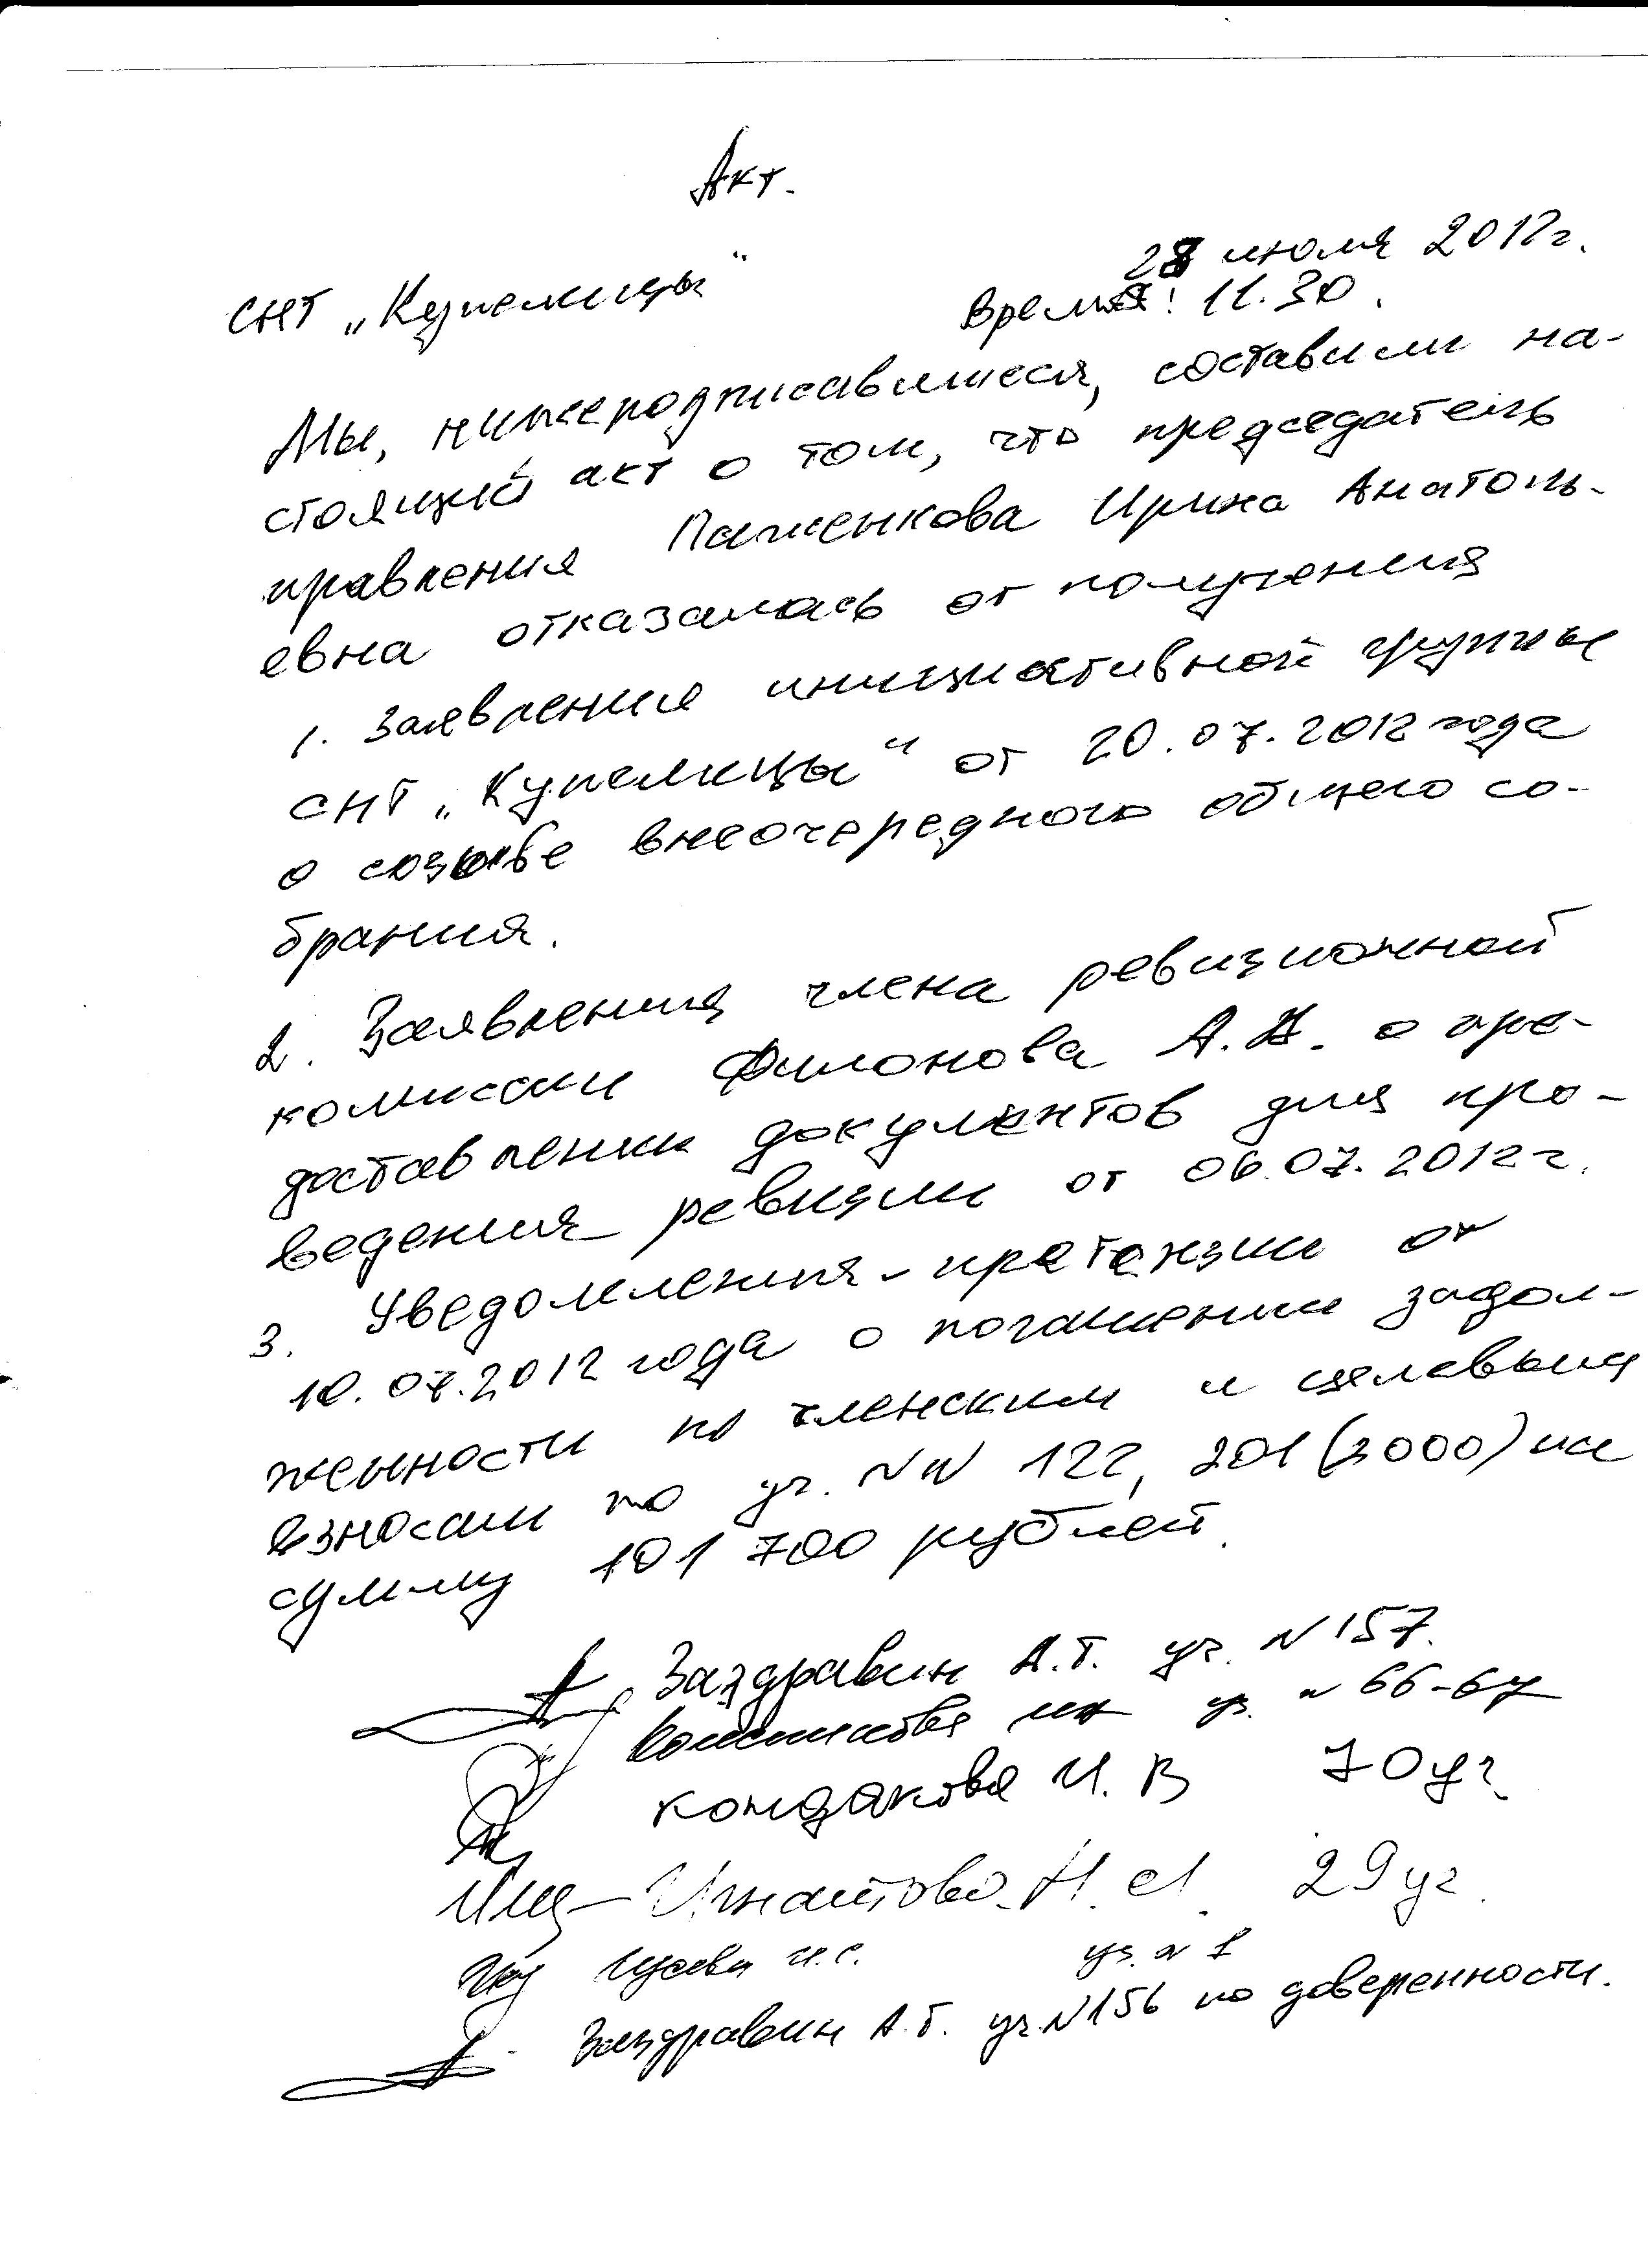 Акт.
28 июля 2012г.
СНТ „Купелицы"
Время: 11.30.
Мы, нижеподписавшиеся, составили на-
стоящий акт о том, что председатель
правления Паженкова Ирина Анатоль-
евна отказалась от получения
1. Заявления инициативной группы
СНТ „Купелицы" от 20.07.2012 года
о созыве внеочередного общего со-
брания.
2. Заявления члена ревизионной
комиссии Филонова А.Н. о пре-
доставлении документов для про-
ведения ревизии от 06.07.2012 г.
3. Уведомления-претензии от
10.07.2012 года о погашении задол-
женности по членским и целевым
взносам по уч. NN 122, 201 (3000) на
сумму 101 700 рублей.
Заздравин А.Т. уч. N 157.
уч. N 66-67
Кондакова И.В 70 уч.
Игнатова Н. 29 уч.
уч. N 1
Заздравин А.Т. уч. N156 по доверенности.